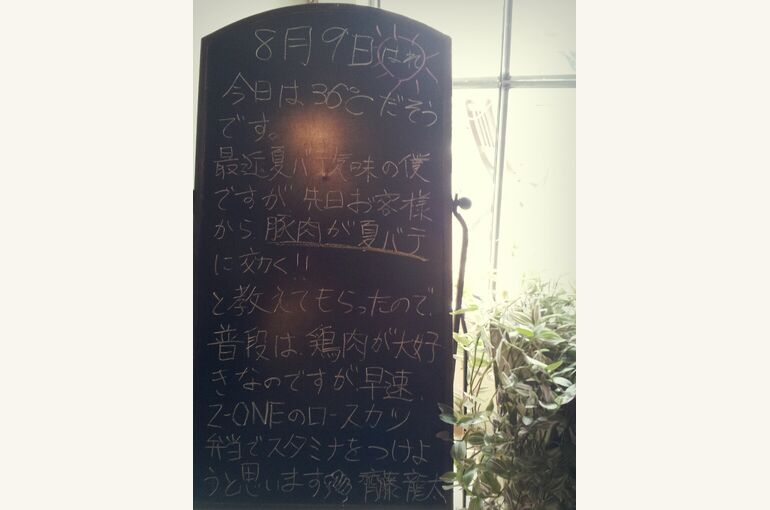 8月9日 はれ
今日は36℃だそう
です。
最近夏バテ気味の僕
ですが先日お客様
から豚肉が夏バテ
に効く!!
と教えてもらったので、
普段は、鶏肉が大好
きなのですが早速、
Z-ONEのロースカツ
弁当でスタミナをつけよ
うと思います 齊藤龍太